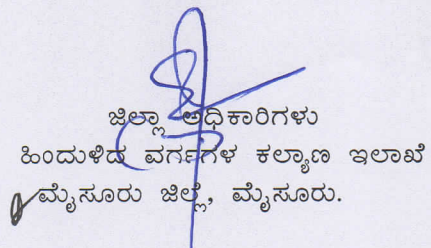 ಜಿಲ್ಲಾ ಅಧಿಕಾರಿಗಳು
ಹಿಂದುಳಿದ ವರ್ಗಗಳ ಕಲ್ಯಾಣ ಇಲಾಖೆ
ಮೈಸೂರು ಜಿಲ್ಲೆ, ಮೈಸೂರು.